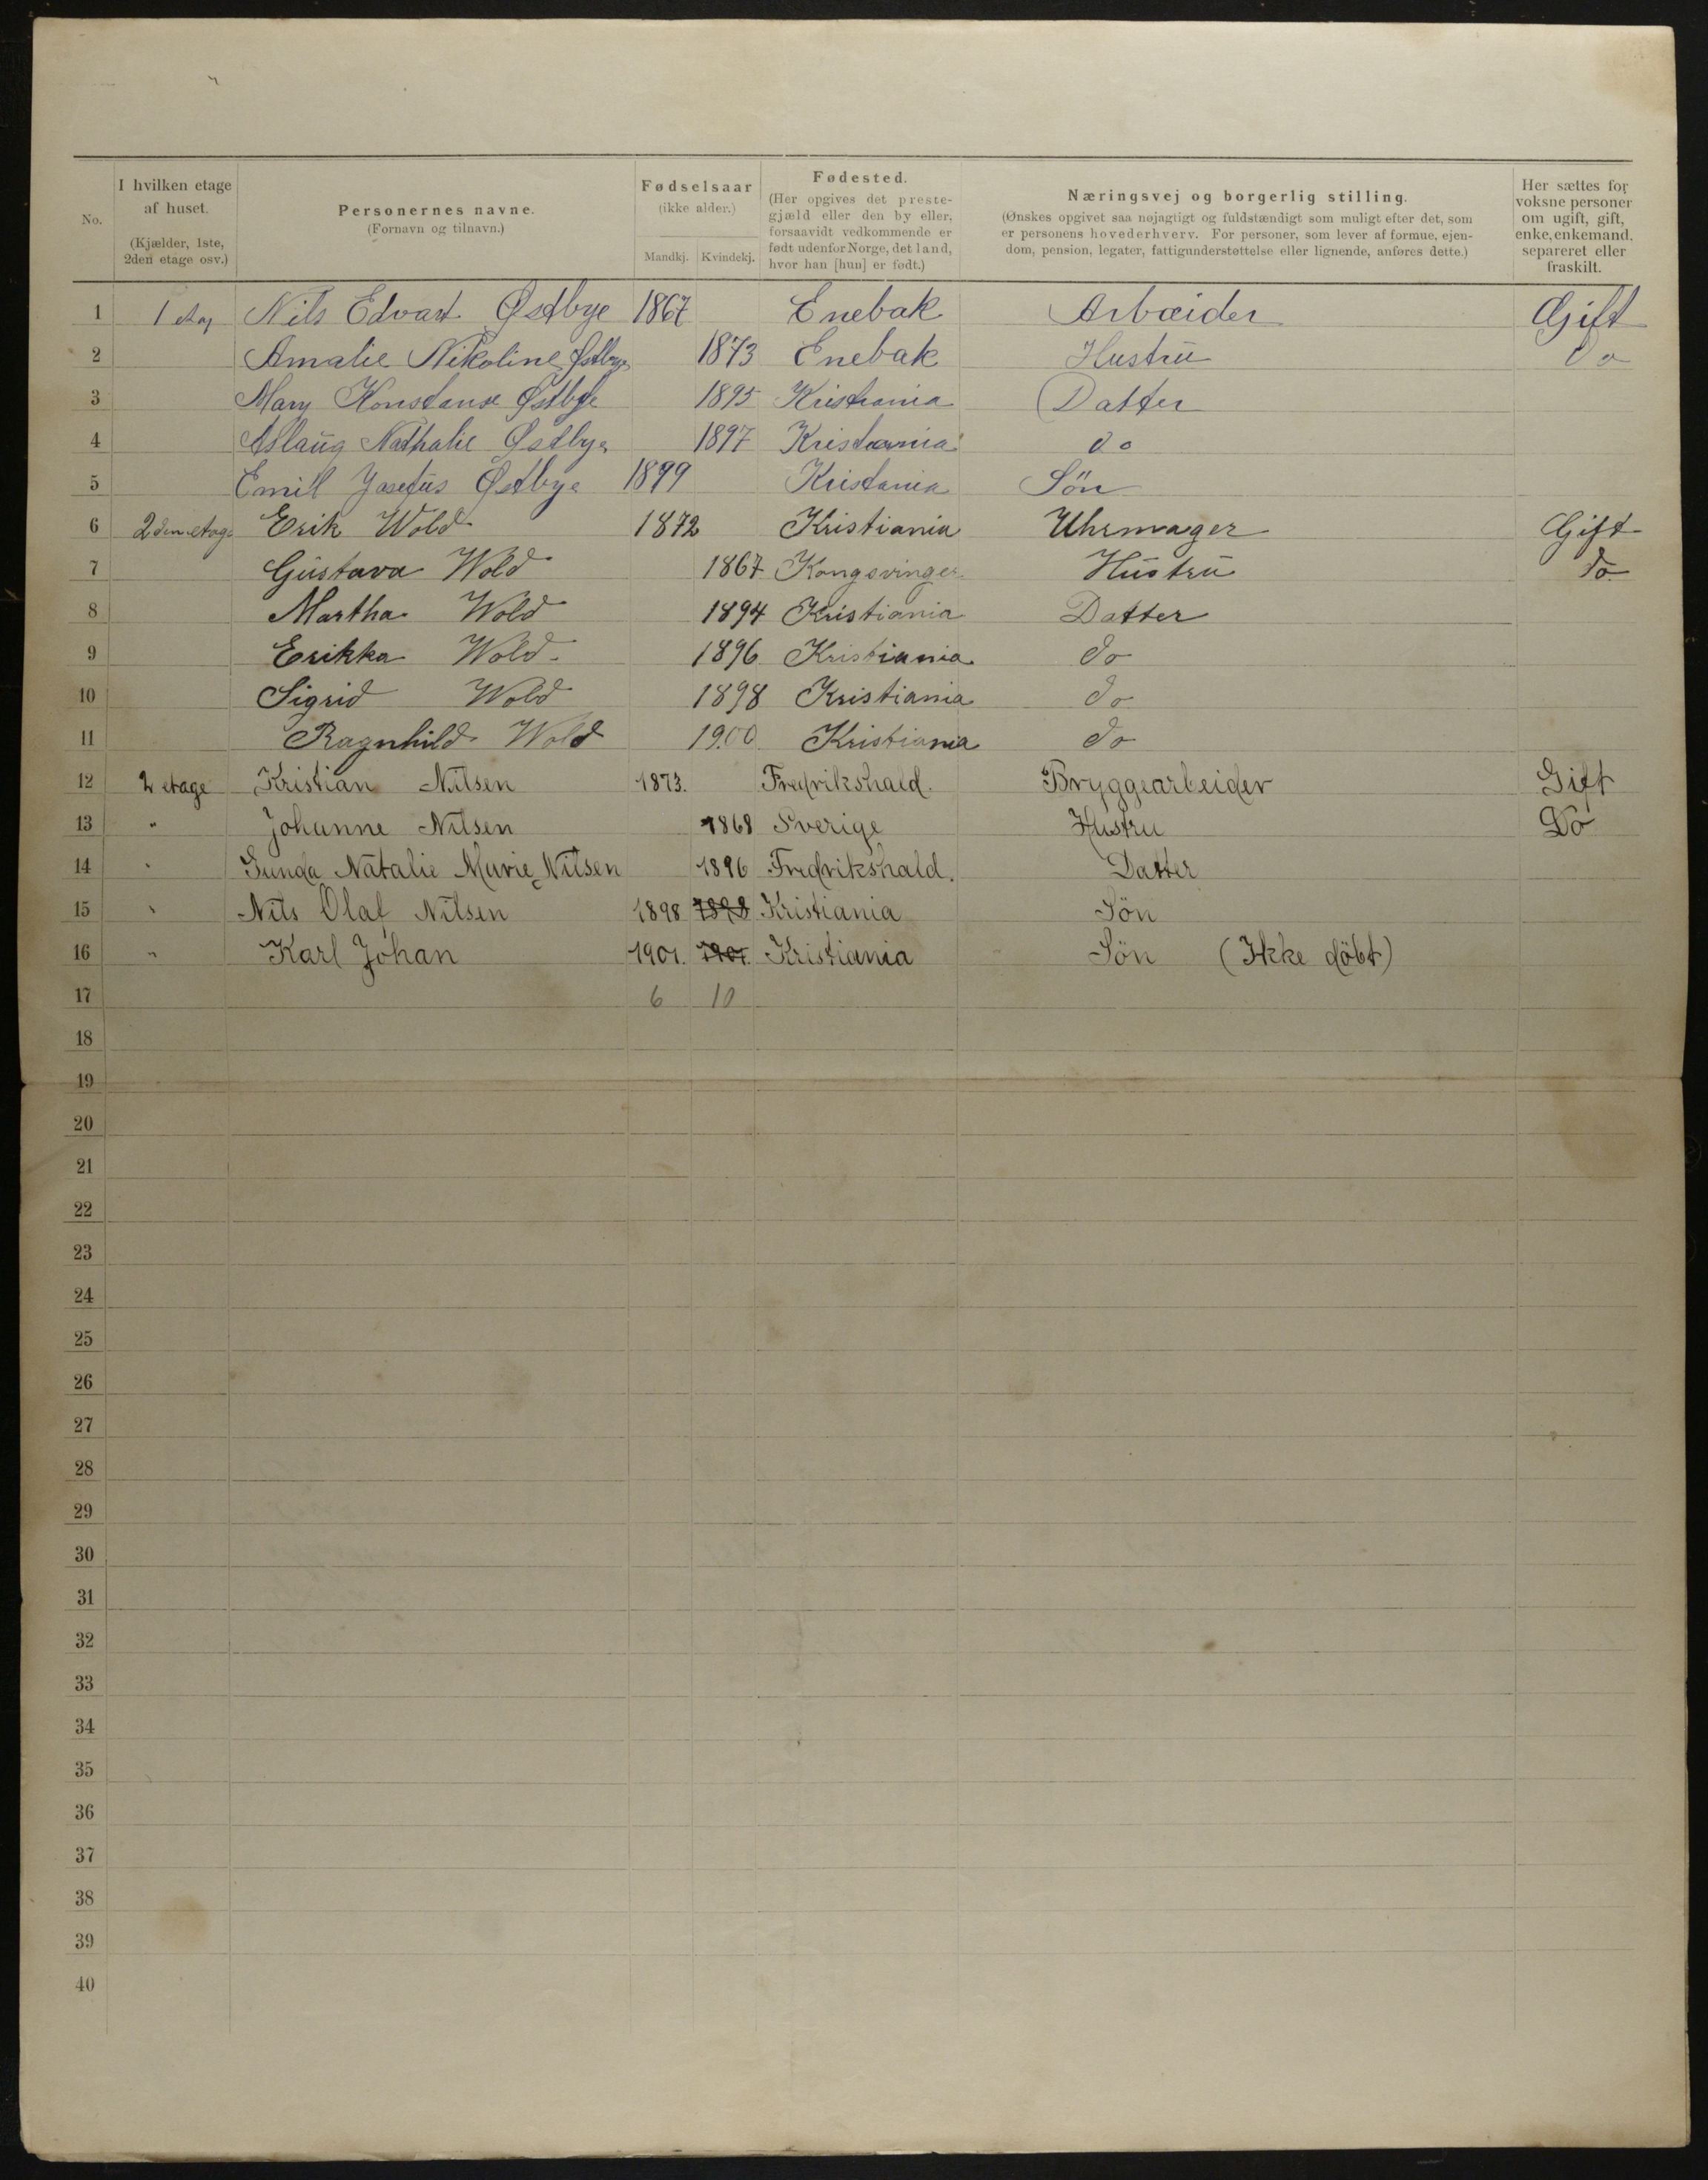 No.
I hvilken etage af huset. (Kjælder, 1ste, 2den etage osv.)
Personernes navne. (Fornavn og tilnavn.)
Fødselsaar (ikke alder.) Mandkj. Kvindekj.
Fødested. (Her opgives det prestegjæld eller den by eller, forsaavidt vedkommende er født udenfor Norge, det land, hvor han [hun] er født.)
Næringsvej og borgerlig stilling.
(Ønskes opgivet saa nøjagtigt og fuldstændigt som muligt efter det, som
er personens hovederhverv. For personer, som lever af formue, ejen-
dom, pension, legater, fattigunderstøttelse eller lignende, anføres dette.)
Her sættes for voksne personer om ugift, gift, enke, enkemand, separeret eller fraskilt.
1 1 etag Nils Edvart Østbye 1867 Enebak Arbæider Gift
2 Amalie Nikoline Østbye 1873 Enebak Hustru Do
3 Mary Konstanse Østbye 1895 Kristiania Datter
4 Aslaug Nathalie Østbye 1897 Kristiania do
5 Emil Josefus Østbye 1899 Kristania Sön
6 2den etage Erik Wold 1872 Kristiania Uhrmager Gift
7 Gustava Wold 1867 Kongsvinger Hustru do
8 Martha Wold 1894 Kristiania Datter
9 Erikka Wold 1896 Kristiania do
10 Sigrid Wold 1898 Kristiania do
11 Ragnhild Wold 1900 Kristiania do
12 2 etage Kristian Nilsen 1873. Fredrikshald. Bryggearbeider Gift
13 " Johanne Nilsen 1868 Sverige Hustru Do
14 " Gunda Natalie Marie Nilsen 1896 Fredrikshald. Datter
15 " Nils Olaf Nilsen 1898 1898 Kristiania Sön
16 " Karl Johan 1901. 1901. Kristiania Sön (Ikke döbt)
17 6 10
18
19
20
21
22
23
24
25
26
27
28
29
30
31
32
33
34
35
36
37
38
39
40